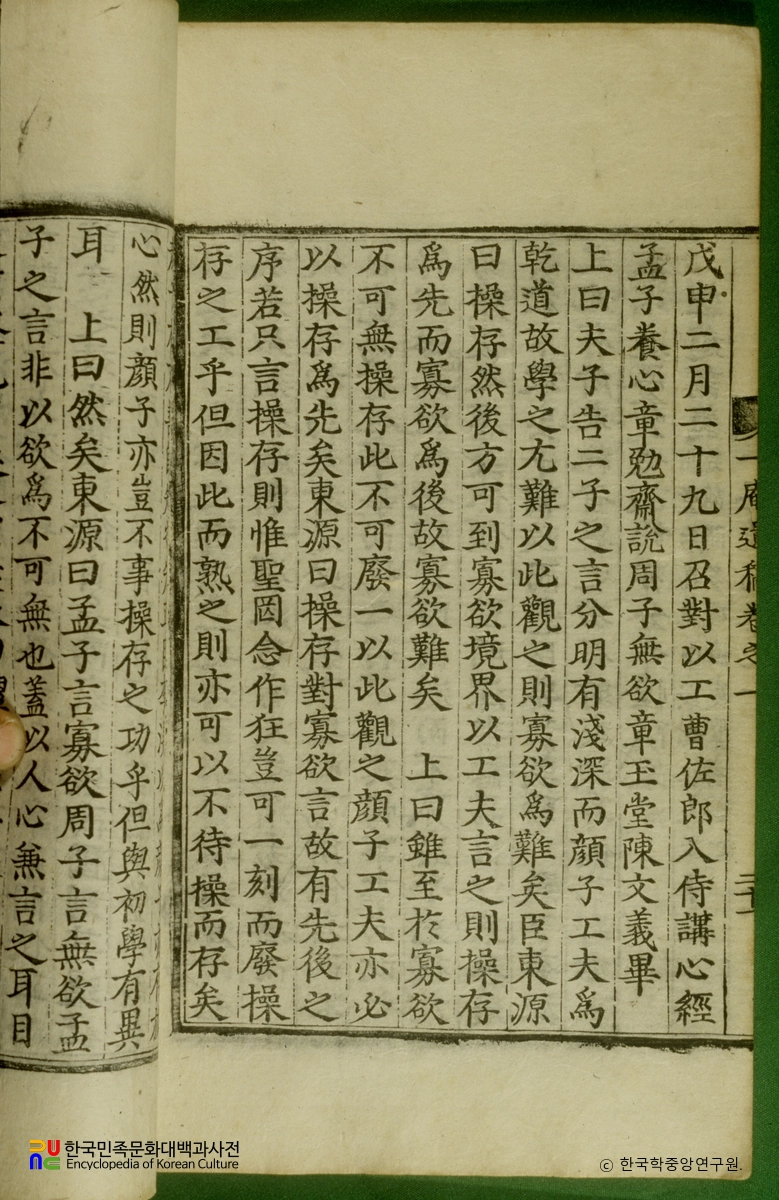 一庵遺稿卷之一
戊申二月二十九日召對以工曹佐郎入侍講心經
孟子養心章勉齋說周子無欲章玉堂陳文義畢
上曰夫子告二子之言分明有淺深而顔子工夫爲
乾道故學之尤難以此觀之則寡欲爲難矣臣東源
曰操存然後方可到寡欲境界以工夫言之則操存
爲先而寡欲爲後故寡欲難矣 上曰雖至於寡欲
不可無操存此不可廢一以此觀之顔子工夫亦必
以操存爲先矣東源曰操存對寡欲言故有先後之
序若只言操存則惟聖罔念作狂豈可一刻而廢操
存之工乎但因此而熟之則亦可以不待操而存矣
心然則顔子亦豈不事操存之功乎但與初學有異
耳 上曰然矣東源曰孟子言寡欲周子言無欲孟
子之言非以欲爲不可無也蓋以人心兼言之耳目
한국민족문화대백과사전
Encyclopedia of Korean Culture
© 한국학중앙연구원.